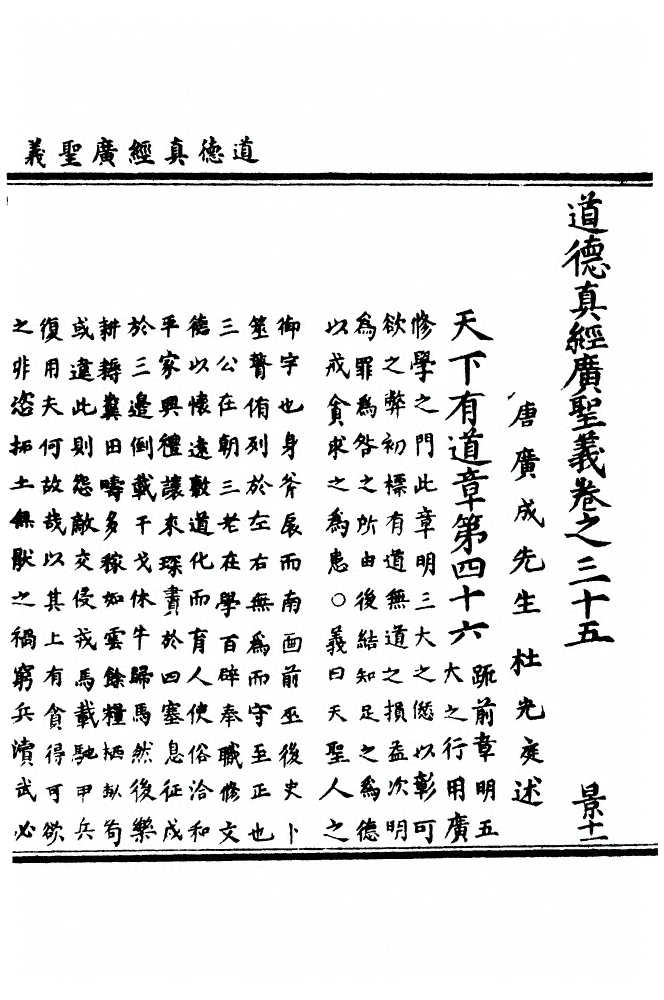 道德真經廣聖義
道德真經廣聖義卷之三十五　景十一
唐廣成先生杜光庭述
天下有道章第四十六
䟽前章明五
大之行用廣
修學之門此章明三大之𠎝以彰可
欲之弊初標有道無道之損益次明
為罪為咎之所由後結知足之為德
以戒貪求之為患○義曰天聖人之
御宇也身斧扆而南面前巫後史卜
筮瞽侑列於左右無為而守至正也
三公在朝三老在學百辟奉職修文
德以懷遠敷道化而育人使俗洽和
平家興禮讓來琛賮於四塞息征戍
於三邊倒載干戈休牛歸馬然後樂
耕耨糞田疇多稼如雲餘糧栖畒苟
或違此則怨敵交侵戎馬載馳甲兵
復用夫何故哉以其上有貪得可欲
之非恣拓土無猒之禍窮兵瀆武必